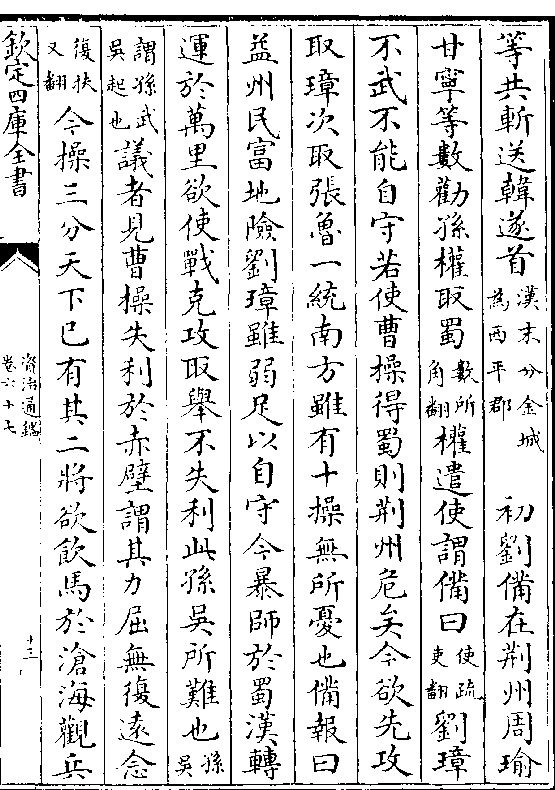 等共斬送韓遂首漢末分金城為西平郡 初劉備在荆州周瑜
甘寧等數勸孫權取蜀數所角翻權遣使謂備曰使疏吏翻劉璋
不武不能自守若使曹操得蜀則荆州危矣今欲先攻
取璋次取張魯一統南方雖有十操無所憂也備報曰
益州民富地險劉璋雖弱足以自守今暴師於蜀漢轉
運於萬里欲使戰克攻取舉不失利此孫吳所難也孫吳
謂孫武吳起也議者見曹操失利於赤壁謂其力屈無復遠念
復扶又翻今操三分天下已有其二將欲飲馬於滄海觀兵
欽定四庫全書
資治通鑑
卷六十七
十三